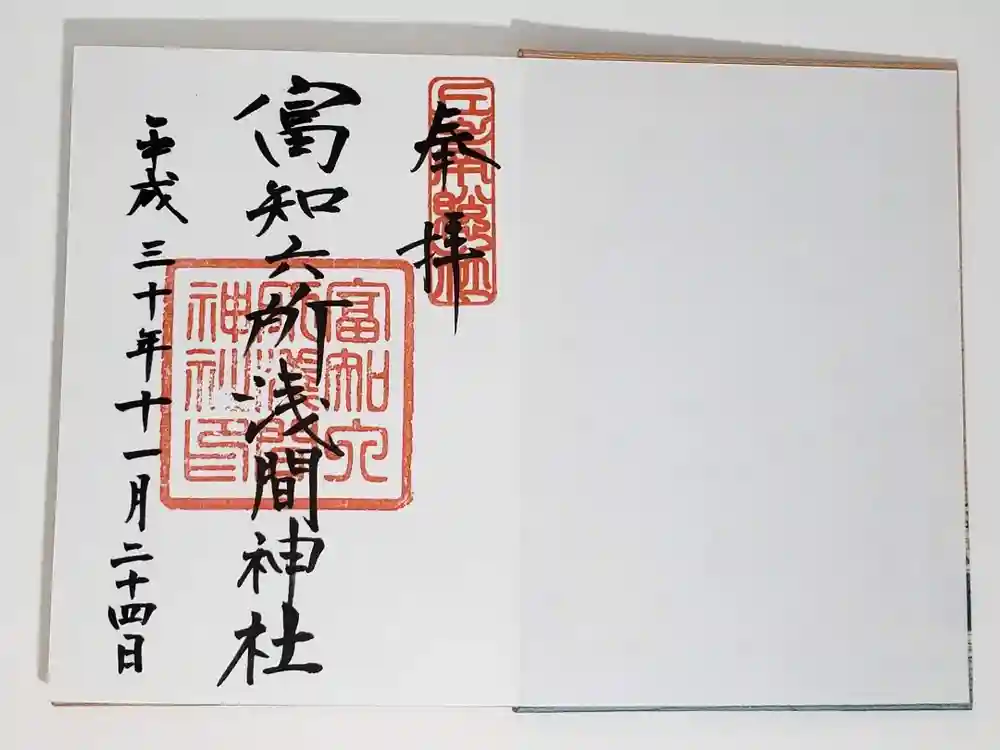 奉拝
富知六所浅間神社
平成三十年十一月二十四日
富知六
所浅間
神社印